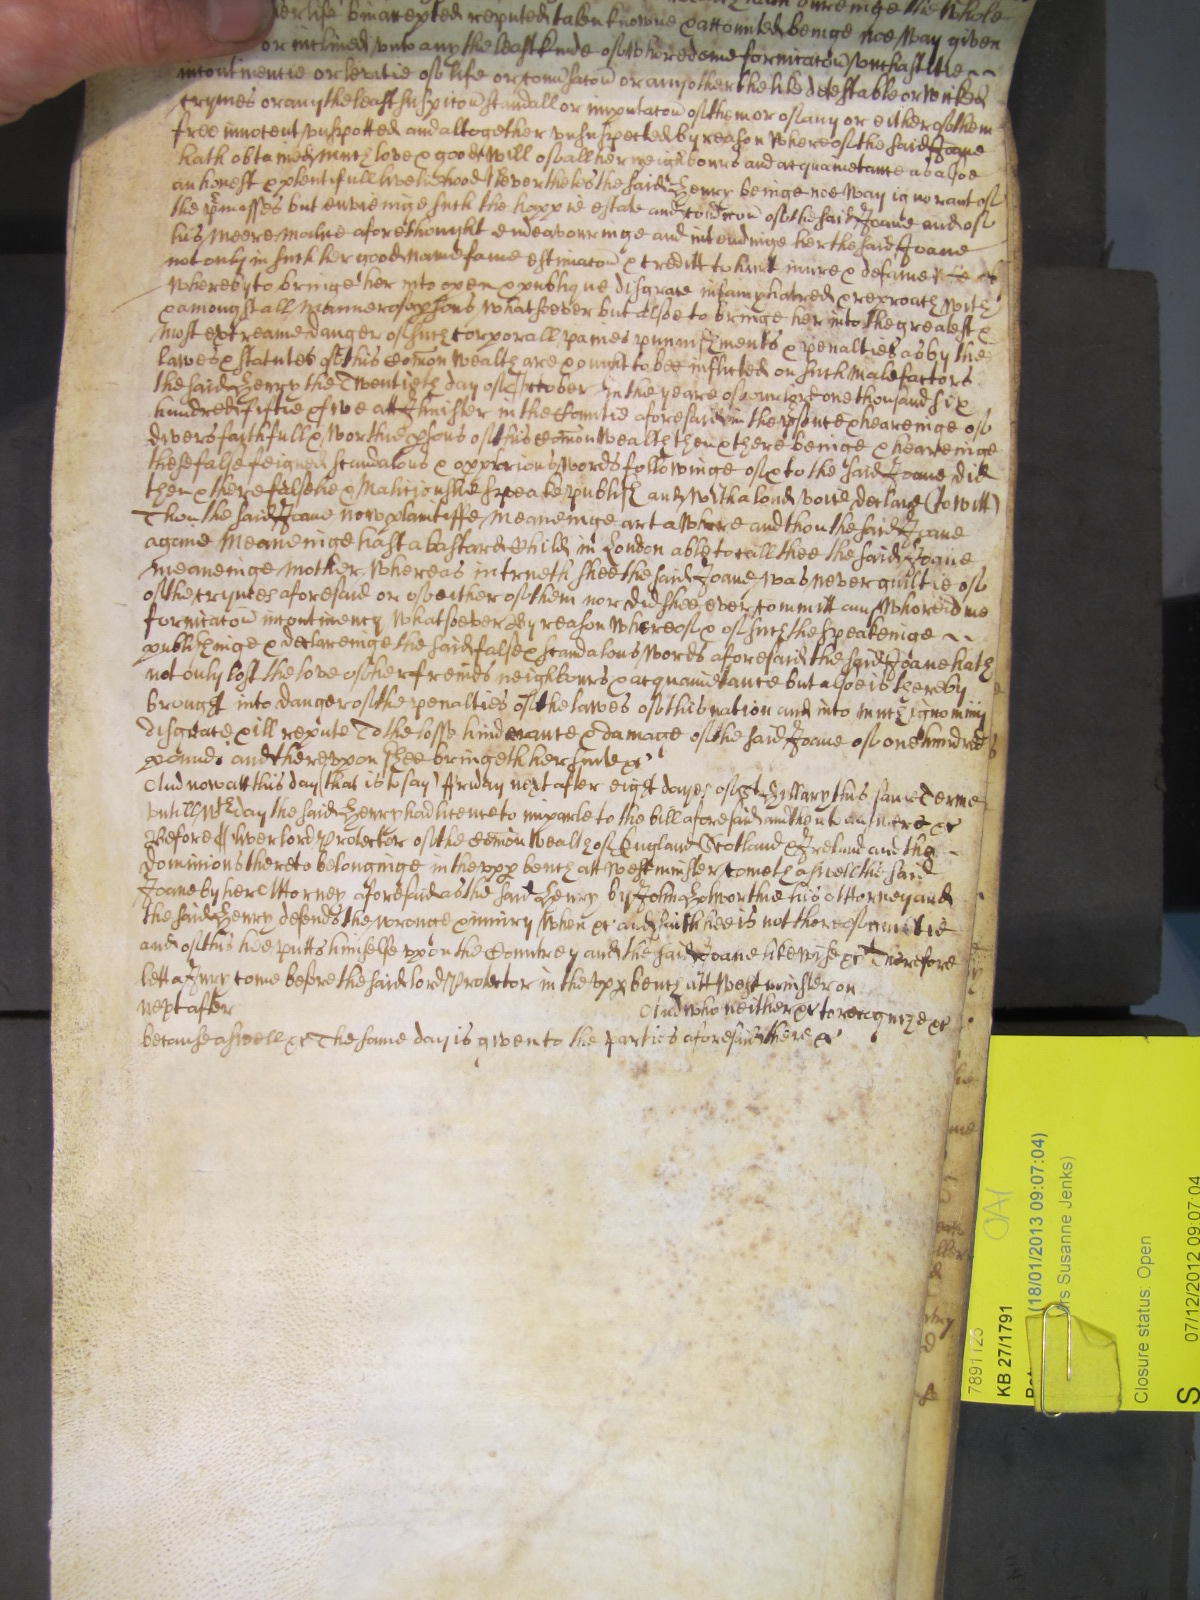 dureinge the whole
her life bin accepted reputed taken knowne & accounted beinge noe way given
or inclined unto any the least kinde of whoredome fornicacon unchastitie
incontinencie or levitie of life or convsacon or any other the like detestable or wicked
crymes or any the least suspicon scandall or imputacon of them or of any or either of them
free innocent unspotted and altogether unsuspected by reason whereof the said Joane
hath obtained much love & good will of all her neighbours and acquaintance as alsoe
an honest & plentifull livelihood Nevertheles the said Henry beinge noe way ignorant of
the pmisses but envieinge such the happie estate and condicon of the said Joane and of
his meere malice aforethought endeavouringe and intendinge her the said Joane
not only in such her good name fame estimacon & creditt to hurt iniure & defame
whereby to bringe her into open & publique disgrace infamy hatred & reproach with
& amongst all manner of psons whatsoever but alsoe to bringe her into the greatest &
most extreame danger of such corporall paines punnishments & penalties as by the
lawes & statutes of this comon wealth are & ought to bee inflicted on such malefactors
the said Henry the Twentieth day of October in the yeare of our lord one thousand six
hundred fiftie & five att in the Countie aforesaid in the psence & heareinge of
divers faithfull & worthie psons of this comon wealth then & there beinge & heareinge
these false feigned scandalous & opprobrious words followinge of & to the said Joane did
then & there falselie & malitiouslie speake publish and with a loud voice declare (to witt)
Thou the said Joane now plaintiffe meaneinge art a whore and thou the said Joane
againe meaneinge hast a bastard child in London able to call thee the said Joane
meaneinge mother, whereas in trueth shee the said Joane was never guiltie of
of the crymes aforesaid or of either of them nor did shee ever committ any whoredome
fornicacon incontinency whatsoever By reason whereof & of such the speakeinge
publishinge & declareinge the said false & scandalous words aforesaid the said Joane hath
not only lost the love of her freinds neighbours & acquaintance but alsoe is thereby
brought into danger of the penalties of the lawes of this nation and into much ignominy
disgrace & ill repute To the losse hinderance & damage of the said Joane of one hundred
pounds and thereupon shee bringeth her suite &c
And now att this day that is to say Fryday next after eight dayes of St Hillary this same Terme
untill wch day the said Henry had licence to imparle to the bill aforesaid and then to answere &c
Before Oliver lord Protector of the comon wealth of England Scotland & Ireland and the
dominions thereto belonginge in the uppr bench att Westminster cometh aswell the said
Joane by her Attorney aforesaid as the said Henry by John Holworthie his Attorney and
the said Henry defends the wronge & iniury when &c and saith hee is not thereof guiltie
and of this hee putts himselfe upon the Countrey and the said Joane likewise &c Therefore
lett a Jury come before the said lord Protector in the uppr bench att Westminster on
next after And who neither &c to recognize &c
because aswell &c The same day is given to the parties aforesaid there &c
7891125
KB 27/1791
(18/01/2013 09:07:04)
rs Susanne Jenks)
Closure status: Open
S
07/12/2012 09:07:04